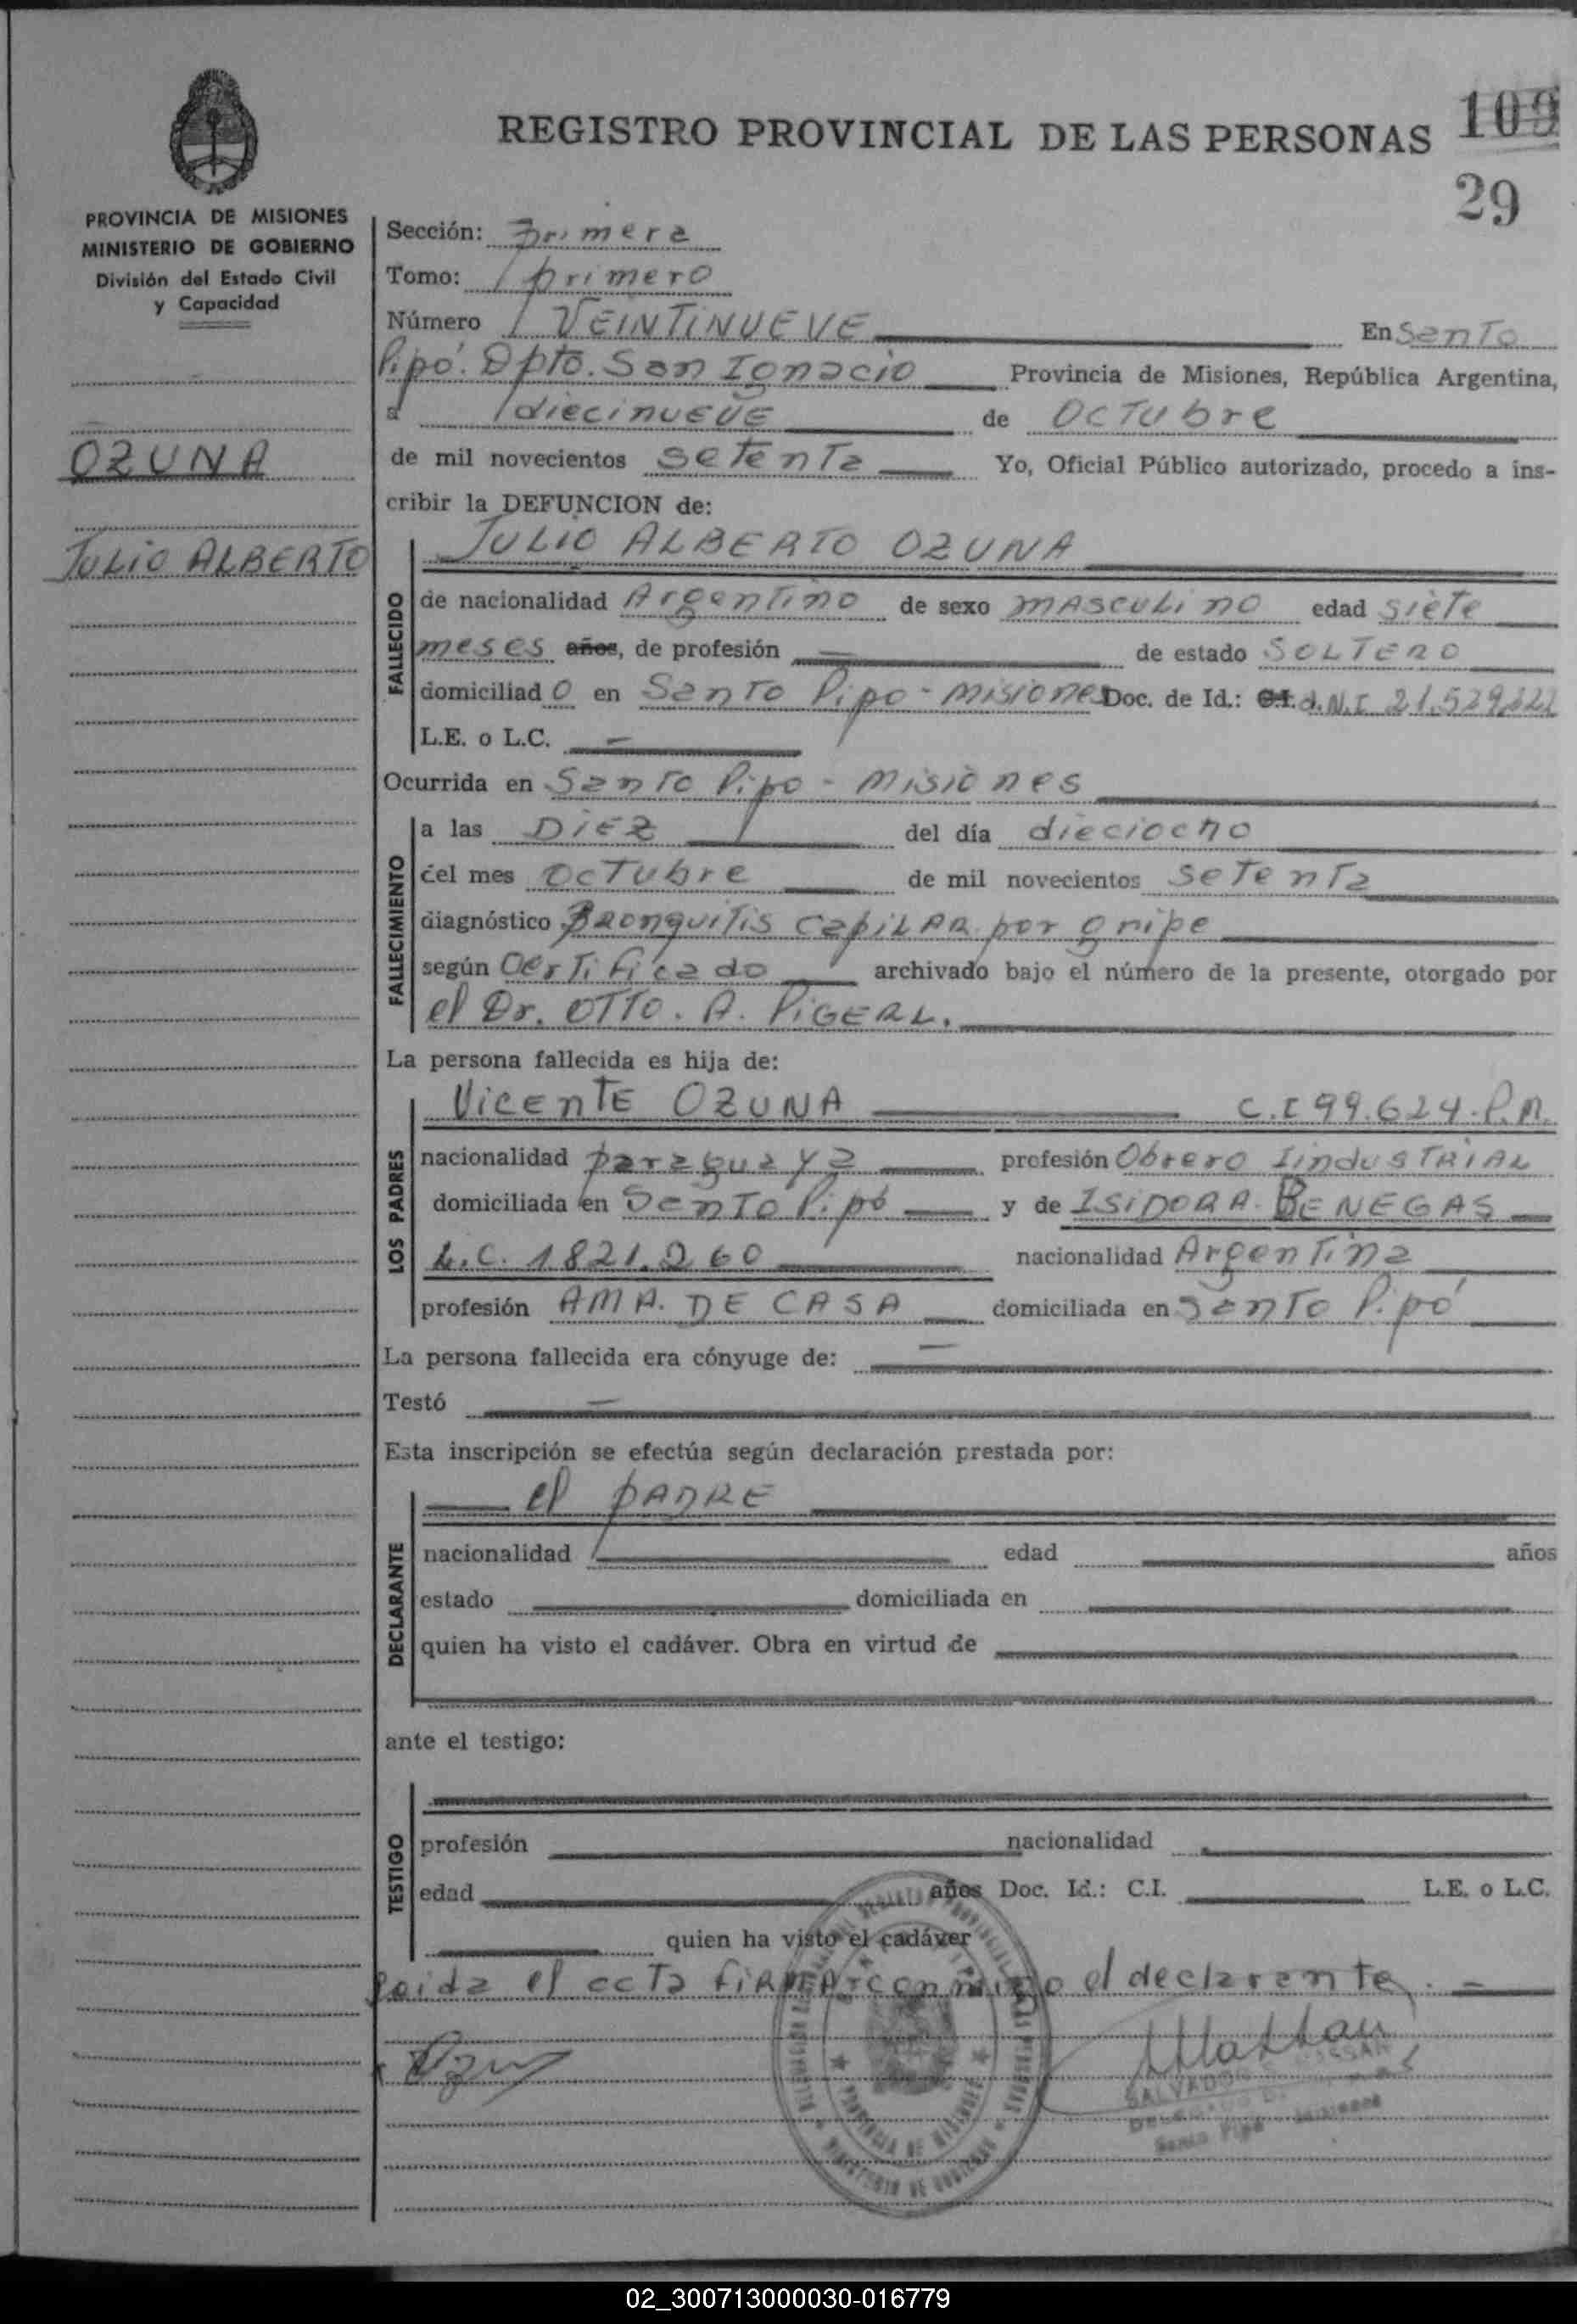 REGISTRO PROVINCIAL DE LAS PERSONAS 109
29
PROVINCIA DE MISIONES
MINISTERIO DE GOBIERNO
División del Estado Civil
y Capacidad
OZUNA
JULIO ALBERTO
Sección: Primera
Tomo: primero
Número VEINTINUEVE En Santo
Pipó. Dpto. San Ignacio Provincia de Misiones, República Argentina,
a diecinueve de Octubre
de mil novecientos setenta Yo, Oficial Público autorizado, procedo a ins-
cribir la DEFUNCION de:
JULIO ALBERTO OZUNA
FALLECIDO
de nacionalidad Argentino de sexo masculino edad siete
meses años, de profesión — de estado SOLTERO
domiciliado en Santo Pipo - Misiones Doc. de Id.: C.I. d.N.I 21.529.
L.E. o L.C. —
Ocurrida en Santo Pipo - Misiones
FALLECIMIENTO
a las DIEZ del día dieciocho
del mes Octubre de mil novecientos setenta
diagnóstico Bronquitis capilar por gripe
según Certificado archivado bajo el número de la presente, otorgado por
el Dr. OTTO. A. PIGERL.
La persona fallecida es hija de:
LOS PADRES
Vicente OZUNA C.I 99.624. P.M.
nacionalidad paraguaya profesión Obrero Iindustrial
domiciliada en Santo Pipó y de ISIDORA BENEGAS
L.C. 1.821.260 nacionalidad Argentina
profesión AMA. DE CASA domiciliada en Santo Pipó
La persona fallecida era cónyuge de: —
Testó —
Esta inscripción se efectúa según declaración prestada por:
DECLARANTE
el PADRE
nacionalidad edad años
estado domiciliada en
quien ha visto el cadáver. Obra en virtud de
ante el testigo:
TESTIGO
profesión nacionalidad
edad años Doc. Id.: C.I. L.E. o L.C.
quien ha visto el cadáver
Leida el acta FIRMA con migo el declarante. —
PROVINCIA DE MISIONES
SALVADOR
Santo Pipó Misiones
02_300713000030-016779